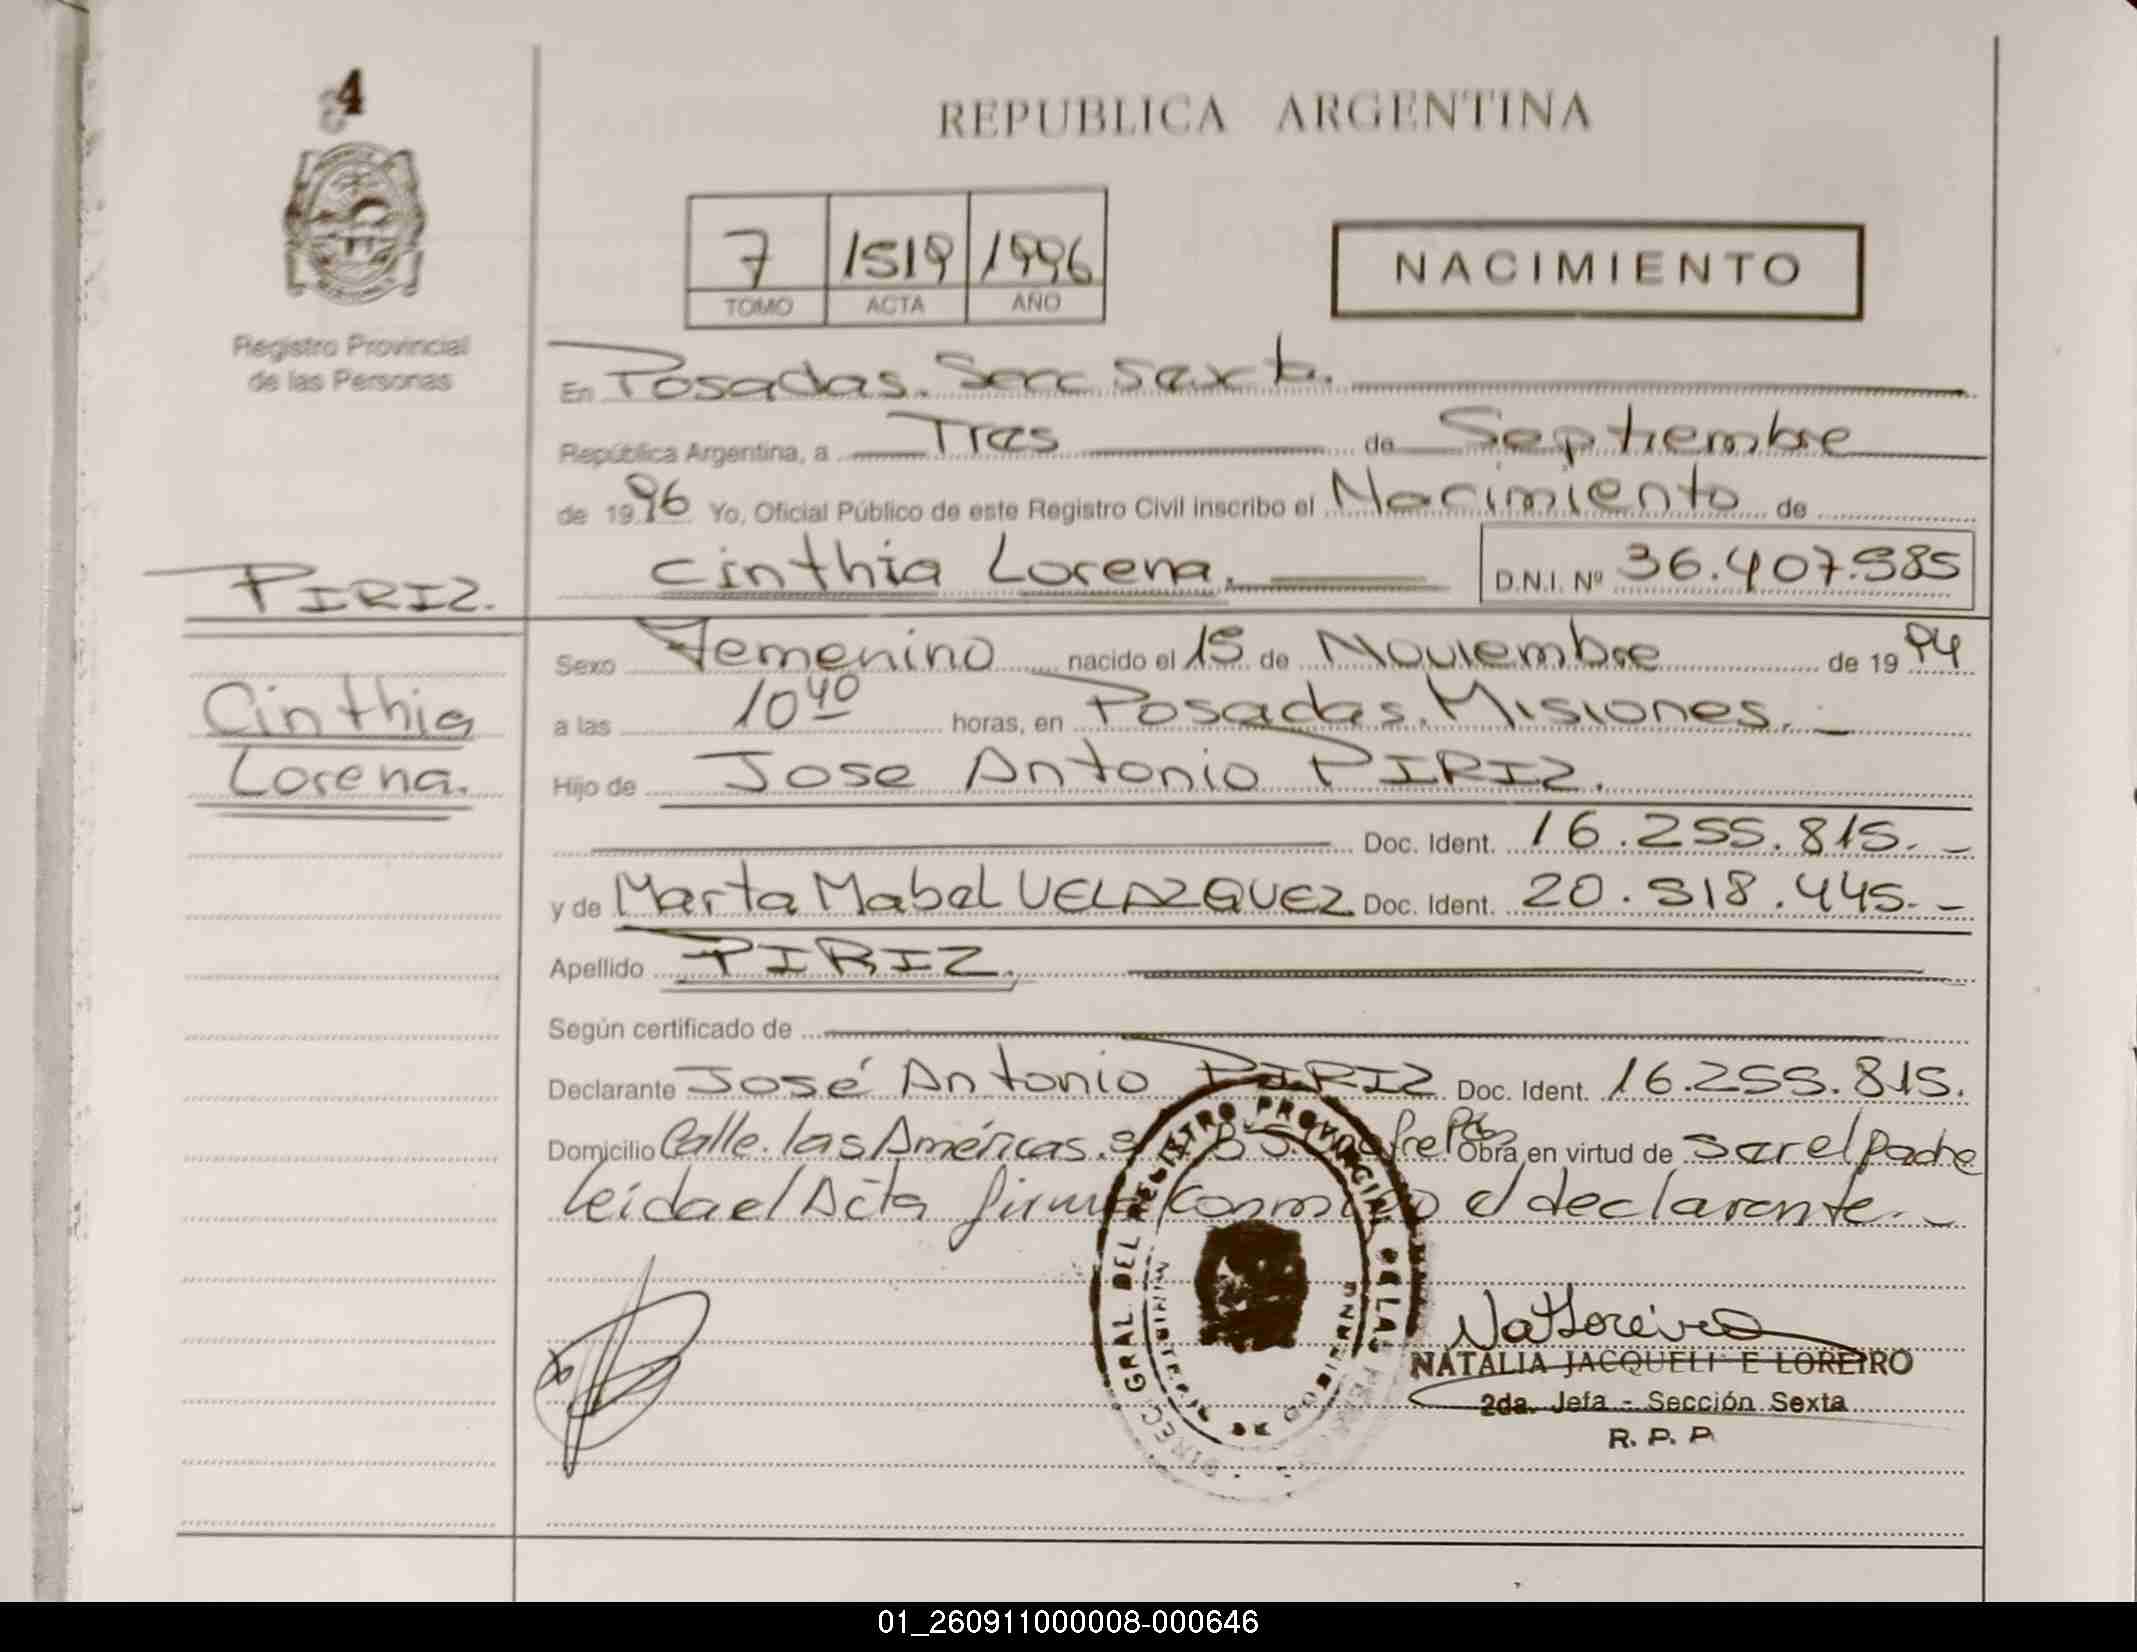 4
REPUBLICA ARGENTINA
7 1519 1996
TOMO ACTA AÑO
NACIMIENTO
Registro Provincial
de las Personas
En Posadas. Secc sexta.
República Argentina, a Tres de Septiembre
de 1996 Yo, Oficial Público de este Registro Civil inscribo el Nacimiento de
Cinthia Lorena. D.N.I. Nº 36.407.985
PIRIZ.
Cinthia
Lorena.
Sexo Femenino nacido el 15 de Noviembre de 1994
a las 10 40 horas, en Posadas. Misiones.
Hijo de Jose Antonio PIRIZ.
Doc. Ident. 16.255.815.-
y de Marta Mabel VELAZQUEZ Doc. Ident. 20.518.445.-
Apellido PIRIZ.
Según certificado de
Declarante José Antonio PIRIZ Doc. Ident. 16.255.815.
Domicilio Calle. las Américas. Obra en virtud de ser el padre
leida el Acta firma conmigo el declarante.-
DIREC. GRAL. DEL REGISTRO PROVINCIAL DE LAS PERSONAS
MINISTERIO DE GOBIERNO
NATALIA JACQUELI E LOREIRO
2da. Jefa - Sección Sexta
R. P. P.
01_260911000008-000646